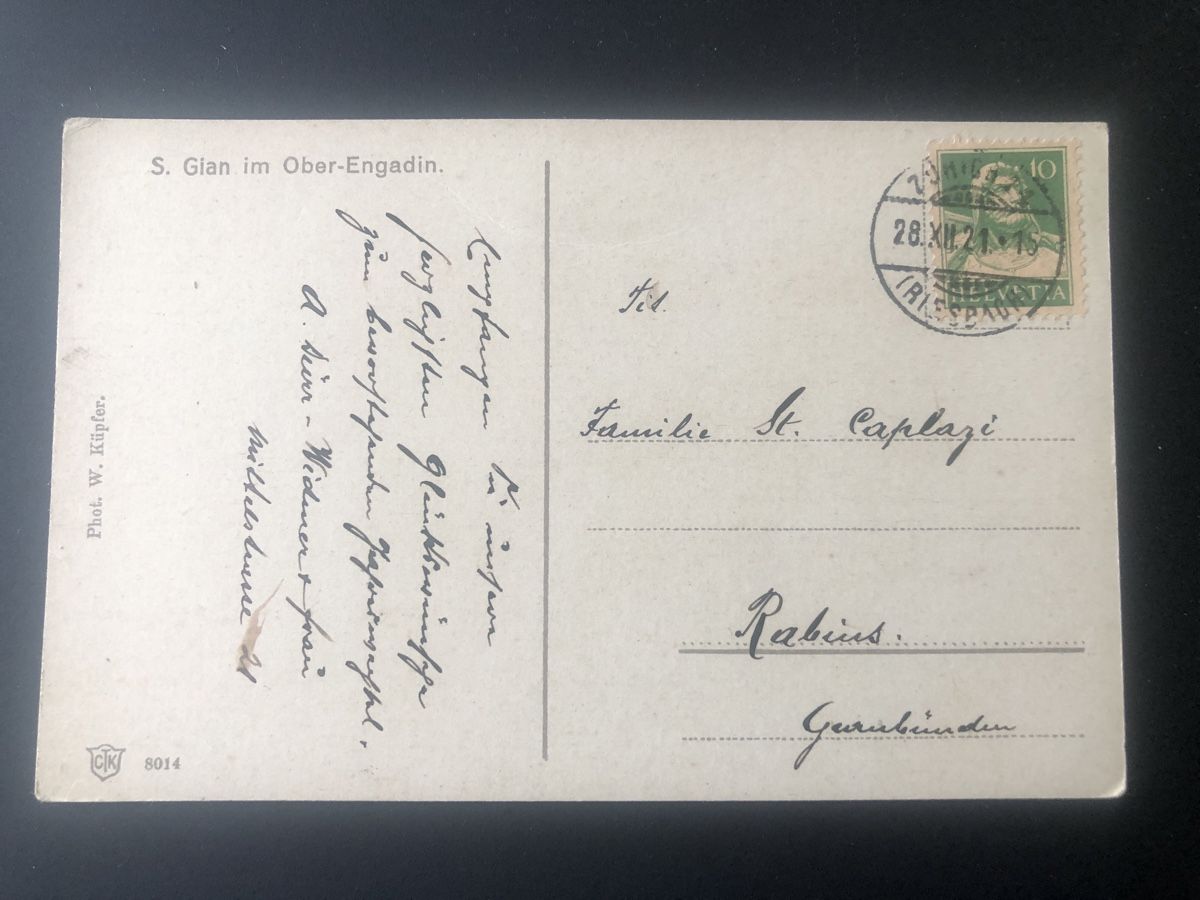 S. Gian im Ober-Engadin.
Empfangen Sie unsere
herzlichsten Glückwünsche
zum bevorstehenden Jahreswechsel.
A. Dürr-Widmer & Frau
Mittelstrasse 21
Phot. W. Küpfer.
CTK 8014
10
ZÜRICH
28.XII.21.15
(RIESBACH)
HELVETIA
Tit.
Familie St. Caplazi
Rabius.
Graubünden